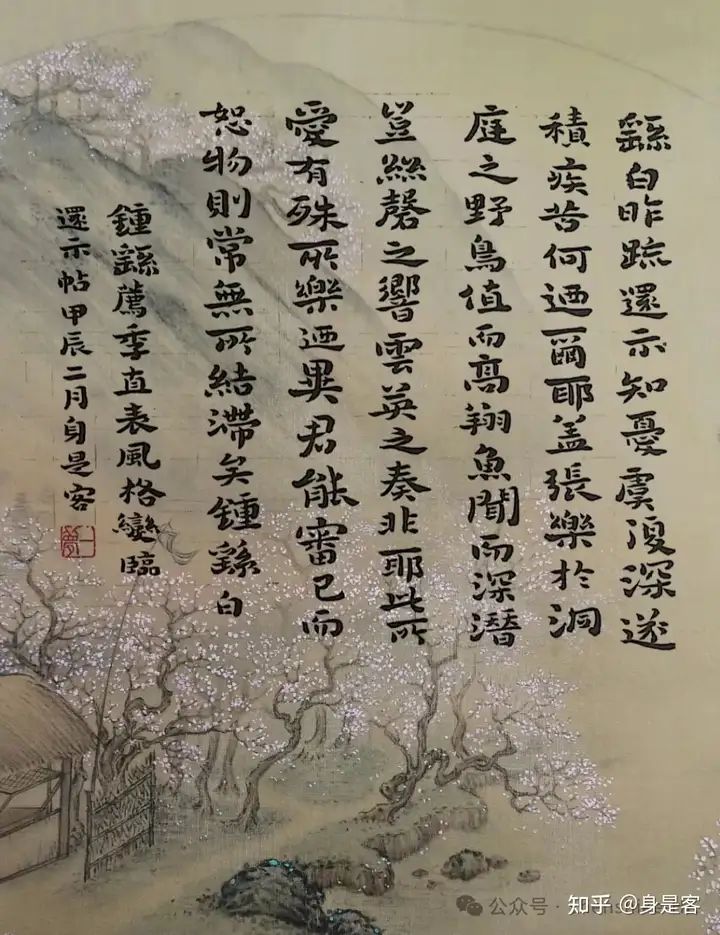 繇白昨疏還示知憂虞復深遂
積疾苦何迺爾耶蓋張樂於洞
庭之野鳥值而高翔魚聞而深潛
豈絲磬之響雲英之奏非耶此所
愛有殊所樂迺異君能審己而
恕物則常無所結滯矣鍾繇白
鍾繇薦季直表風格變臨
還示帖甲辰二月身是客
知乎 @身是客
公众号